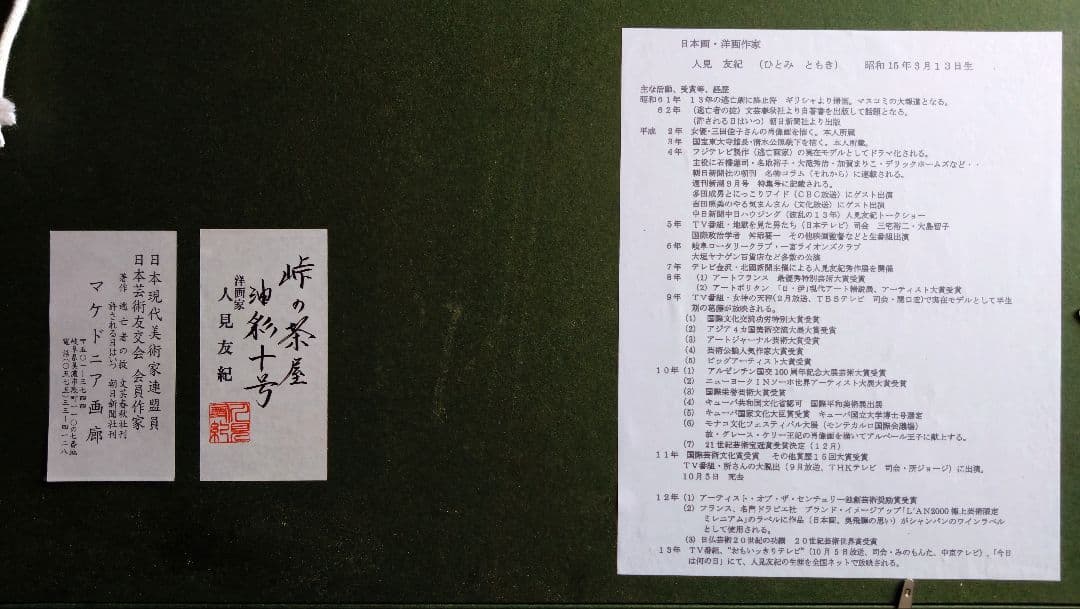 日本現代美術家連盟員
日本芸術友交会 会員作家
著作 逃亡者の掟 文芸春秋社刊
許される日はいつ 朝日新聞社刊
マケドニア画廊
〒五〇一-三七四四
電話(〇五七五)三三-四一二八
峠の茶屋
油彩十号
洋画家
人見友紀
日本画・洋画作家
人見 友紀 (ひとみ ともき) 昭和15年3月13日生
主な活動、受賞等、経歴
昭和61年 13年の逃亡劇に終止符 ギリシャより帰国。マスコミの大報道となる。
62年 (逃亡者の掟)文芸春秋社より自著書を出版して話題となる。
(許される日はいつ)朝日新聞社より出版
平成 2年 女優・三田佳子さんの肖像画を描く。本人所蔵
3年 国宝東大寺館長・清水公照殿下を描く。本人所蔵。
4年 フジテレビ製作(逃亡画家)の実在モデルとしてドラマ化される。
主役に石橋蓮司・名取裕子・大滝秀治・加賀まりこ・デリックホームズなど・・
朝日新聞社の朝刊 名物コラム(それから)に連載される。
週刊新潮9月号 特集号に記載される。
多田成男とにっこりワイド(CBC放送)にゲスト出演
吉田照美のやる気まんまん(文化放送)にゲスト出演
中日新聞中日ハウジング(波乱の13年)人見友紀トークショー
5年 TV番組・地獄を見た男たち(日本テレビ)司会 三宅裕二・大島智子
国際政治学者 舛添要一 その他映画監督などと生番組出演
6年 岐阜ロータリークラブ・一宮ライオンズクラブ
大垣ヤナゲン百貨店など多数の公演
7年 テレビ金沢・北國新聞主催による人見友紀秀作展を開催
8年 (1) アートフランス 最優秀特別芸術大賞受賞
(2) アートポリタン 「日・伊」現代アート掲載展、アーティスト大賞受賞
9年 TV番組・女神の天秤(2月放送、TBSテレビ 司会・関口宏)で実在モデルとして半生
劇の葛藤が放映される。
(1) 国際文化交流功労特別大賞受賞
(2) アジア4カ国美術交流大展大賞受賞
(3) アートジャーナル芸術大賞受賞
(4) 芸術公論人気作家大賞受賞
(5) ビッグアーティスト大賞受賞
10年 (1) アルゼンチン国交100周年記念大展芸術大賞受賞
(2) ニューヨークINソーホ世界アーティスト大展大賞受賞
(3) 国際栄誉芸術大賞受賞
(4) キューバ共和国文化省認可 国際平和美術展出展
(5) キューバ国家文化大臣賞受賞 キューバ国立大学博士号選定
(6) モナコ文化フェスティバル大展(モンテカルロ国際会議場)
故・グレース・ケリー王妃の肖像画を描いてアルベール王子に献上する。
(7) 21世紀芸術宝冠賞受賞決定(12月)
11年 国際芸術文化賞受賞 その他賞歴15回大賞受賞
TV番組・所さんの大脱出(9月放送、THKテレビ 司会・所ジョージ)に出演。
10月5日 死去
12年 (1) アーティスト・オブ・ザ・センチュリー独創芸術奨励賞受賞
(2) フランス、名門ドラピエ社 ブランド・イメージアップ「L'AN2000極上芸術限定
ミレニアム」のラベルに作品(日本画、奥飛騨の思い)がシャンパンのワインラベル
として使用される。
(3) 日仏芸術20世紀の功績 20世紀芸術世界賞受賞
13年 TV番組、"おもいっきりテレビ"(10月5日放送、司会・みのもんた、中京テレビ)、「今日
は何の日」にて、人見友紀の生涯を全国ネットで放映される。